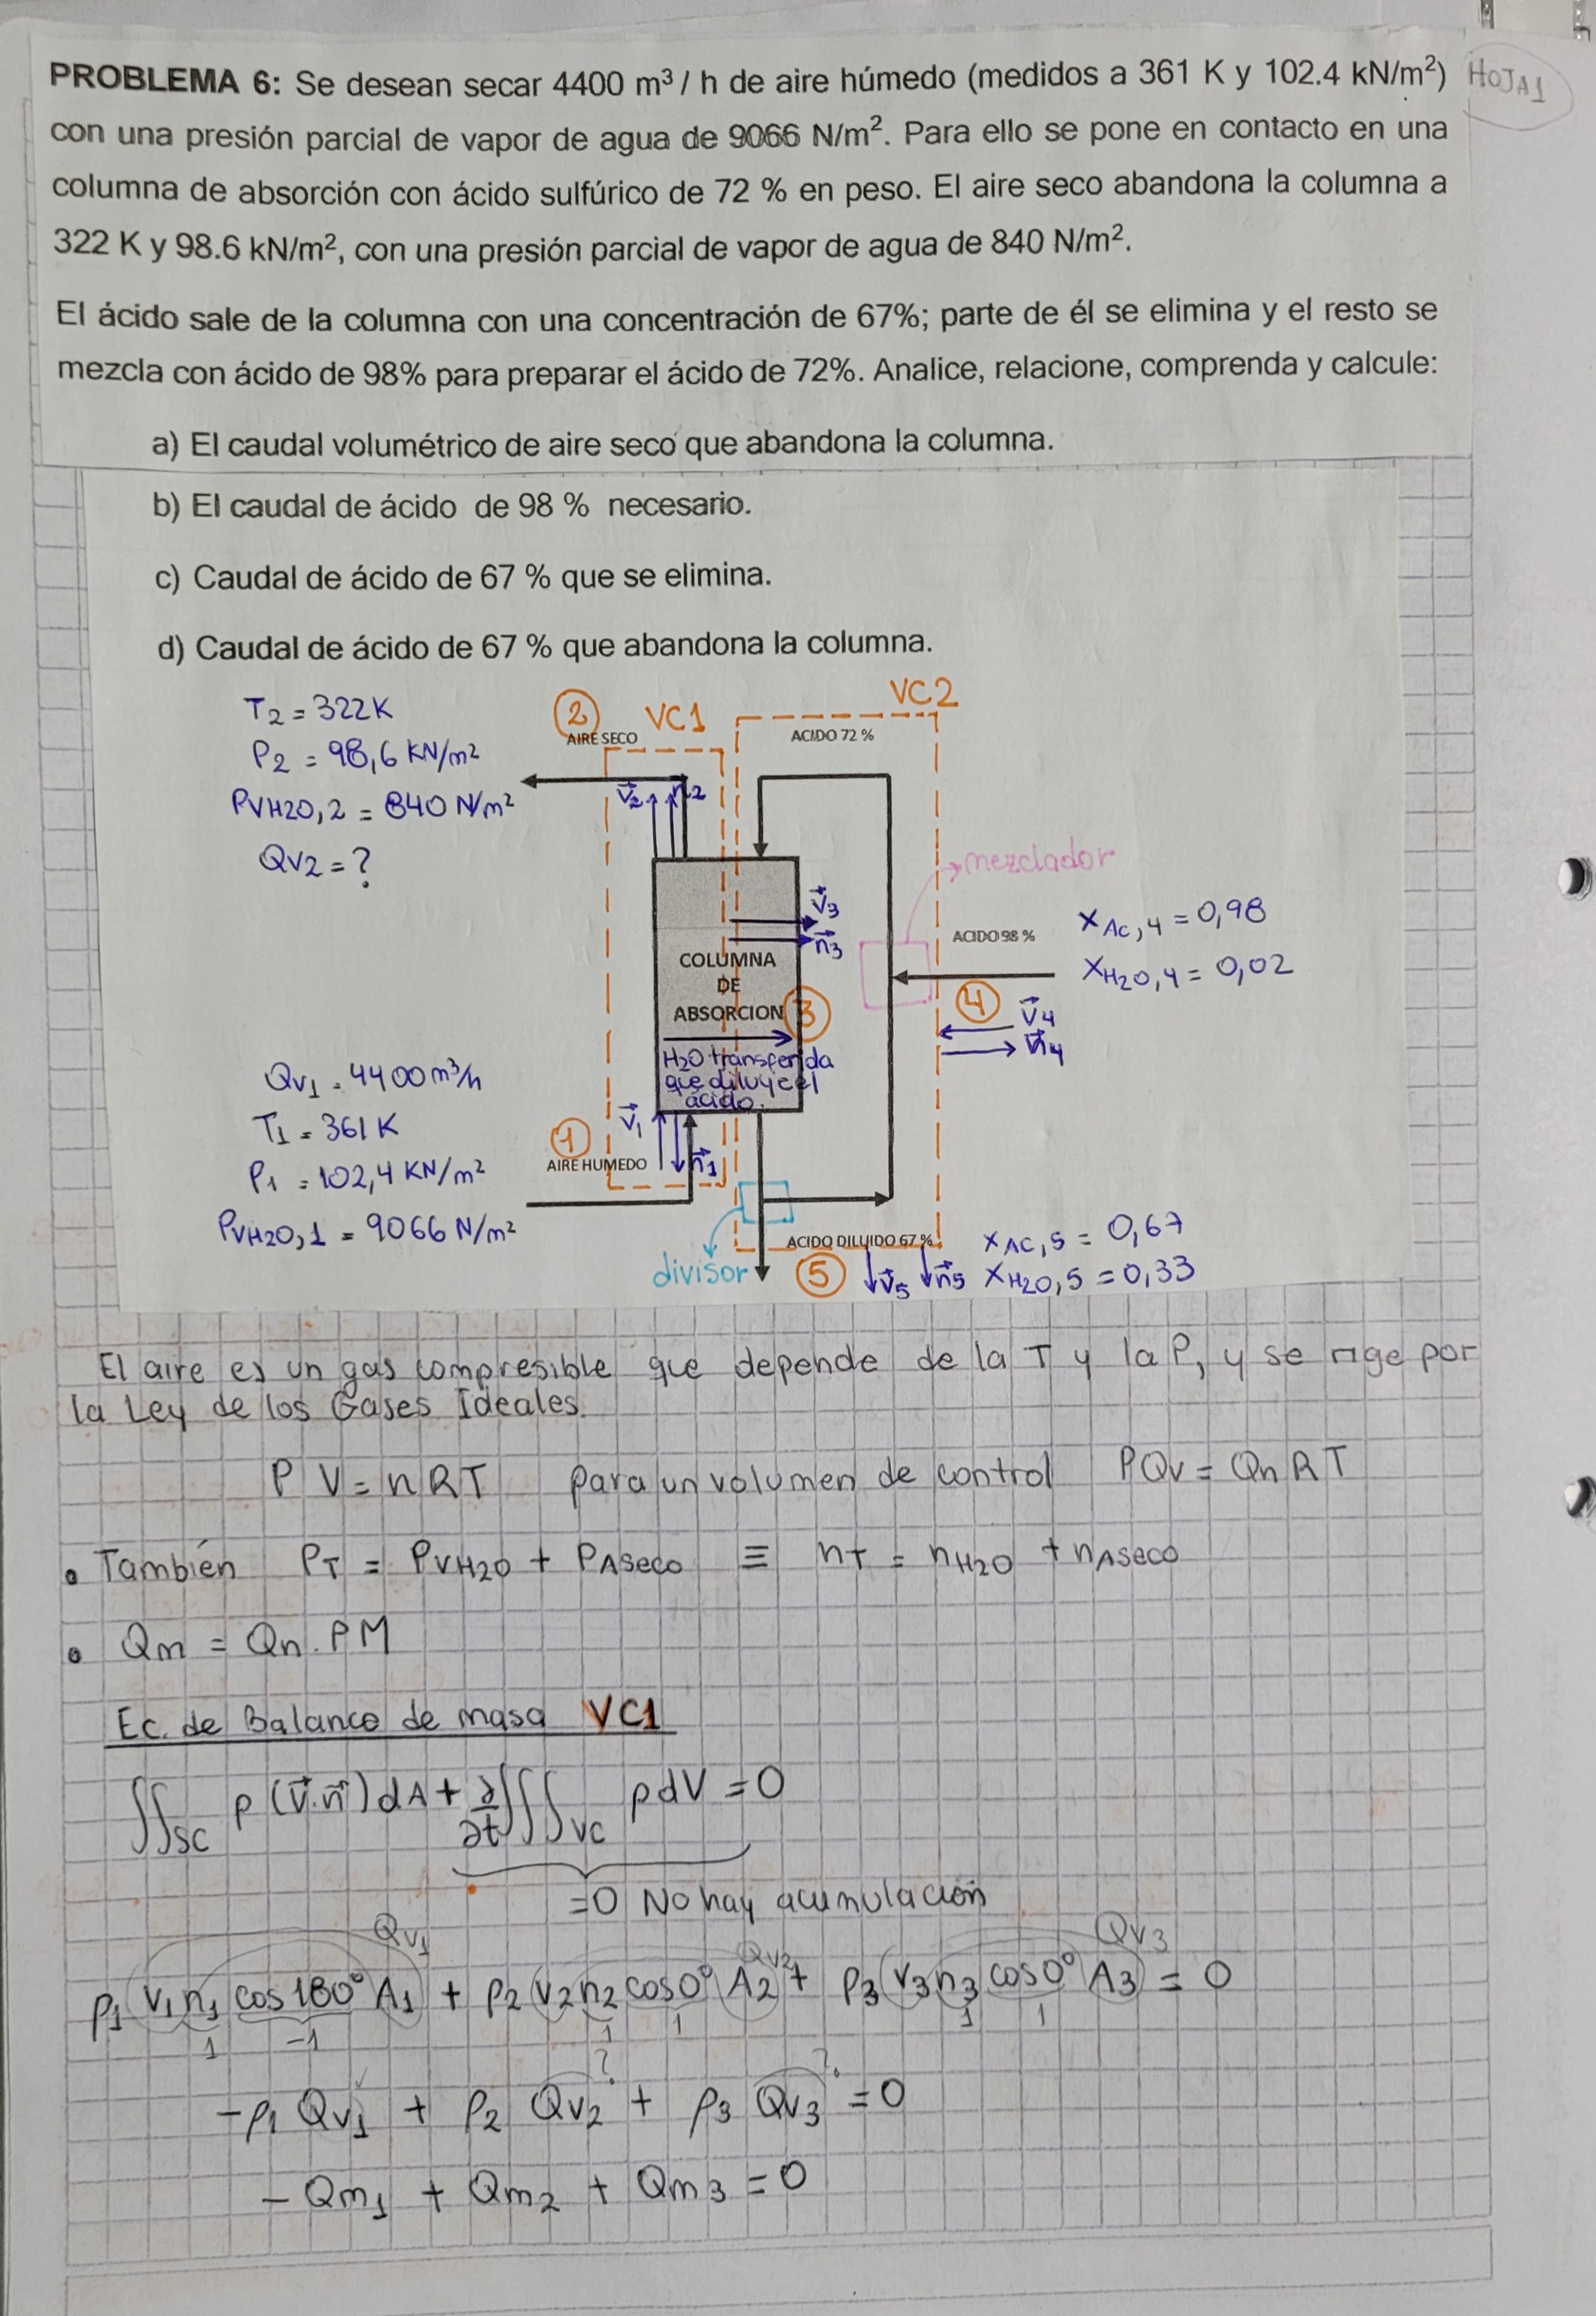 PROBLEMA 6: Se desean secar 4400 m³ / h de aire húmedo (medidos a 361 K y 102.4 kN/m²)
HOJA1
con una presión parcial de vapor de agua de 9066 N/m². Para ello se pone en contacto en una
columna de absorción con ácido sulfúrico de 72 % en peso. El aire seco abandona la columna a
322 K y 98.6 kN/m², con una presión parcial de vapor de agua de 840 N/m².
El ácido sale de la columna con una concentración de 67%; parte de él se elimina y el resto se
mezcla con ácido de 98% para preparar el ácido de 72%. Analice, relacione, comprenda y calcule:
a) El caudal volumétrico de aire seco que abandona la columna.
b) El caudal de ácido de 98 % necesario.
c) Caudal de ácido de 67 % que se elimina.
d) Caudal de ácido de 67 % que abandona la columna.
T2 = 322K
P2 = 98,6 KN/m²
PVH2O,2 = 840 N/m²
QV2 = ?
2
AIRE SECO
VC1
VC2
ACIDO 72 %
V⃗2 n⃗2
mezclador
V⃗3
n⃗3
COLUMNA
DE
ABSORCION
3
H2O transferida
que diluye el
ácido.
ACIDO 98 %
XAc,4 = 0,98
XH2O,4 = 0,02
4
V⃗4
n⃗4
QV1 = 4400 m³/h
T1 = 361K
P1 = 102,4 KN/m²
PVH2O,1 = 9066 N/m²
1
AIRE HUMEDO
V⃗1
n⃗1
divisor
ACIDO DILUIDO 67 %
5
V⃗5 n⃗5
XAC,5 = 0,67
XH2O,5 = 0,33
El aire es un gas compresible que depende de la T y la P, y se rige por
la Ley de los Gases Ideales.
P V = n R T para un volumen de control PQv = Qn R T
• También PT = PVH2O + PASeco ≡ nT = nH2O + nASeco
• Qm = Qn . PM
Ec. de Balance de masa VC1
∬SC ρ (V⃗.n⃗) dA + ∂/∂t ∭VC ρ dV = 0
=0 No hay acumulación
Qv1 Qv2 Qv3
ρ1 V1 n1 cos 180° A1 + ρ2 (V2 n2 cos 0° A2 + ρ3 (V3 n3 cos 0° A3) = 0
1 -1 1 1 1 1
? ?
-ρ1 Qv1 + ρ2 Qv2 + ρ3 Qv3 = 0
- Qm1 + Qm2 + Qm3 = 0